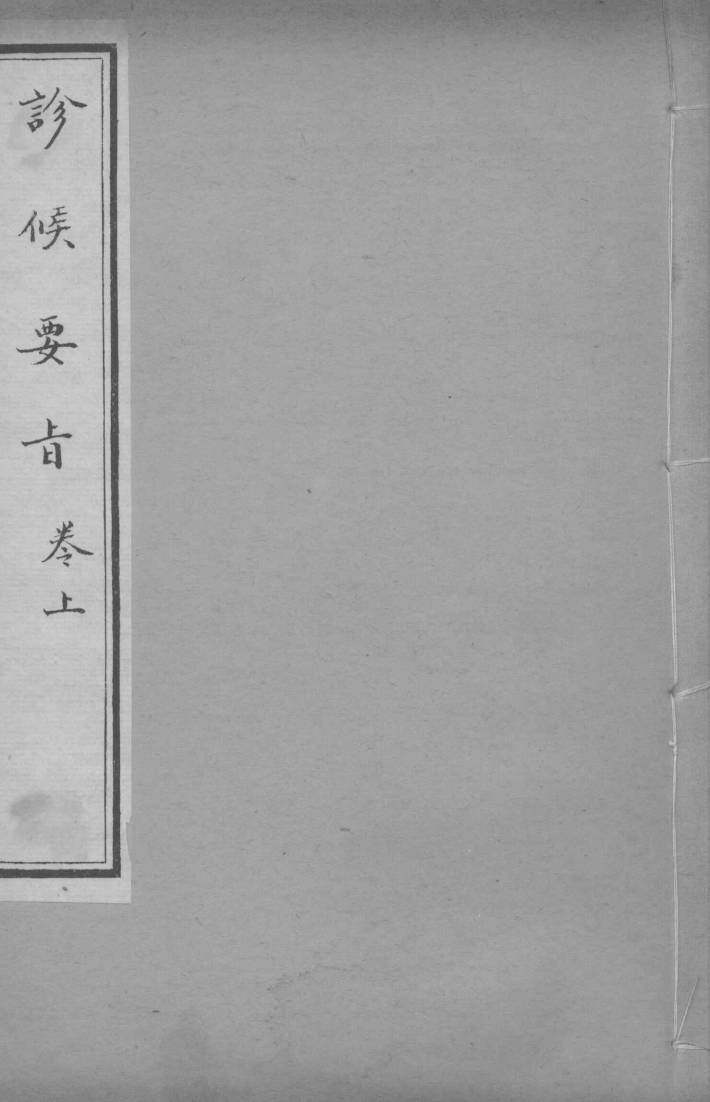 診候要旨 卷上